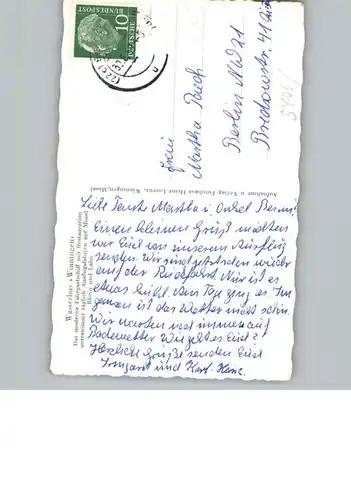 10
DEUTSCHE
BUNDESPOST
(22c)
Frau
Martha Buch
Berlin NW 21
Bredowstr. 41
Aufnahme u. Verlag Fotohaus Heinz Lorenz, Winningen/Mosel
Wasserbus »Winningen«
Das moderne Fahrgastschiff mit Restauration
unternimmt täglich Ausflugsfahrten auf Mosel
Rhein und Lahn.
Liebe Tante Martha u. Onkel Benno!
Einen kleinen Gruß möchten
wir Euch von unserem Ausflug
senden. Wir sind jetzt schon wieder
auf der Rückfahrt. Nur ist es
etwas kühl. Am Tage ging es. Im
ganzen ist das Wetter nicht schön.
Wir warten noch immer auf
Badewetter. Wie geht es Euch?
Herzliche Grüße senden Euch
Irmgard und Karl-Heinz